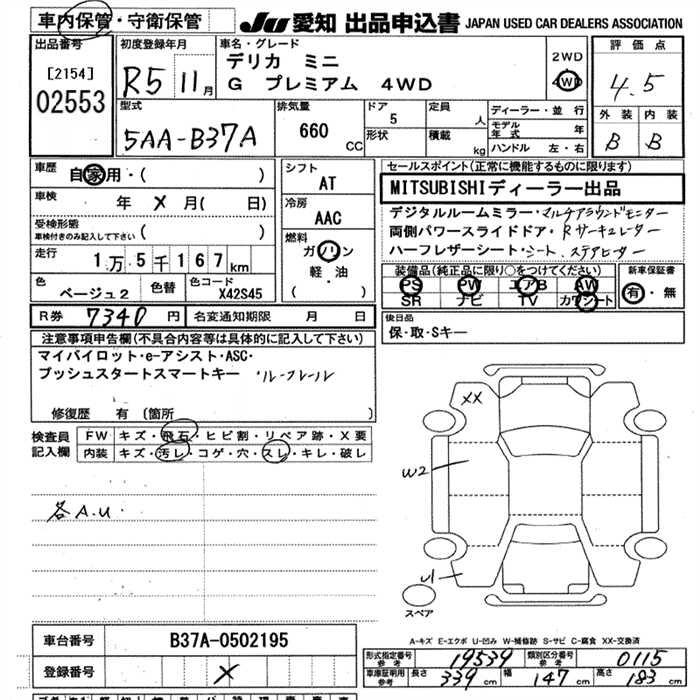 車内保管・守衛保管 JU 愛知 出品申込書 JAPAN USED CAR DEALERS ASSOCIATION
出品番号
[2154]
02553
初度登録年月
R5 11月
車名・グレード
デリカ ミニ
G プレミアム 4WD
2WD
4WD
評価点
4.5
外装 内装
B B
型式
5AA-B37A
排気量
660 CC
ドア
5
形状
定員 人
積載 kg
ディーラー・並行
モデル年式 年
ハンドル 左・右
車歴 自家用・( )
車検 年 X 月( 日)
受検形態
車検付きのみ記入して下さい ( )
走行 1万5千167km
色 ベージュ2 色替 色コード X42S45
シフト
AT
冷房
AAC
燃料
ガソリン
軽・油
( )
セールスポイント(正常に機能するものに限ります)
MITSUBISHIディーラー出品
デジタルルームミラー・マルチアラウンドモニター
両側パワースライドドア・Rサーキュレーター
ハーフレザーシート・シート、ステアヒーター
装備品(純正品に限り○をつけてください)
PS PW エアB AW
SR ナビ TV カワシート
新車保証書
有・無
R券 7340円 名変通知期限 月 日
後日品
保・取・Sキー
注意事項申告欄(不具合内容等は具体的に記入して下さい)
マイパイロット・e-アシスト・ASC・
プッシュスタートスマートキー ・ルーフレール
修復歴 有(箇所 )
検査員記入欄
FW キズ・飛石・ヒビ割・リペア跡・X要
内装 キズ・汚レ・コゲ・穴・スレ・キレ・破レ
各A.U
XX
W2
U1
スペア
A-キズ E-エクボ U-凹み W-補修跡 S-サビ C-腐食 XX-交換済
車台番号 B37A-0502195
登録番号 X
形式指定番号 参考 19539 類別区分番号 参考 0115
車庫証明用 参考 長さ 339cm 幅 147cm 高さ 183cm